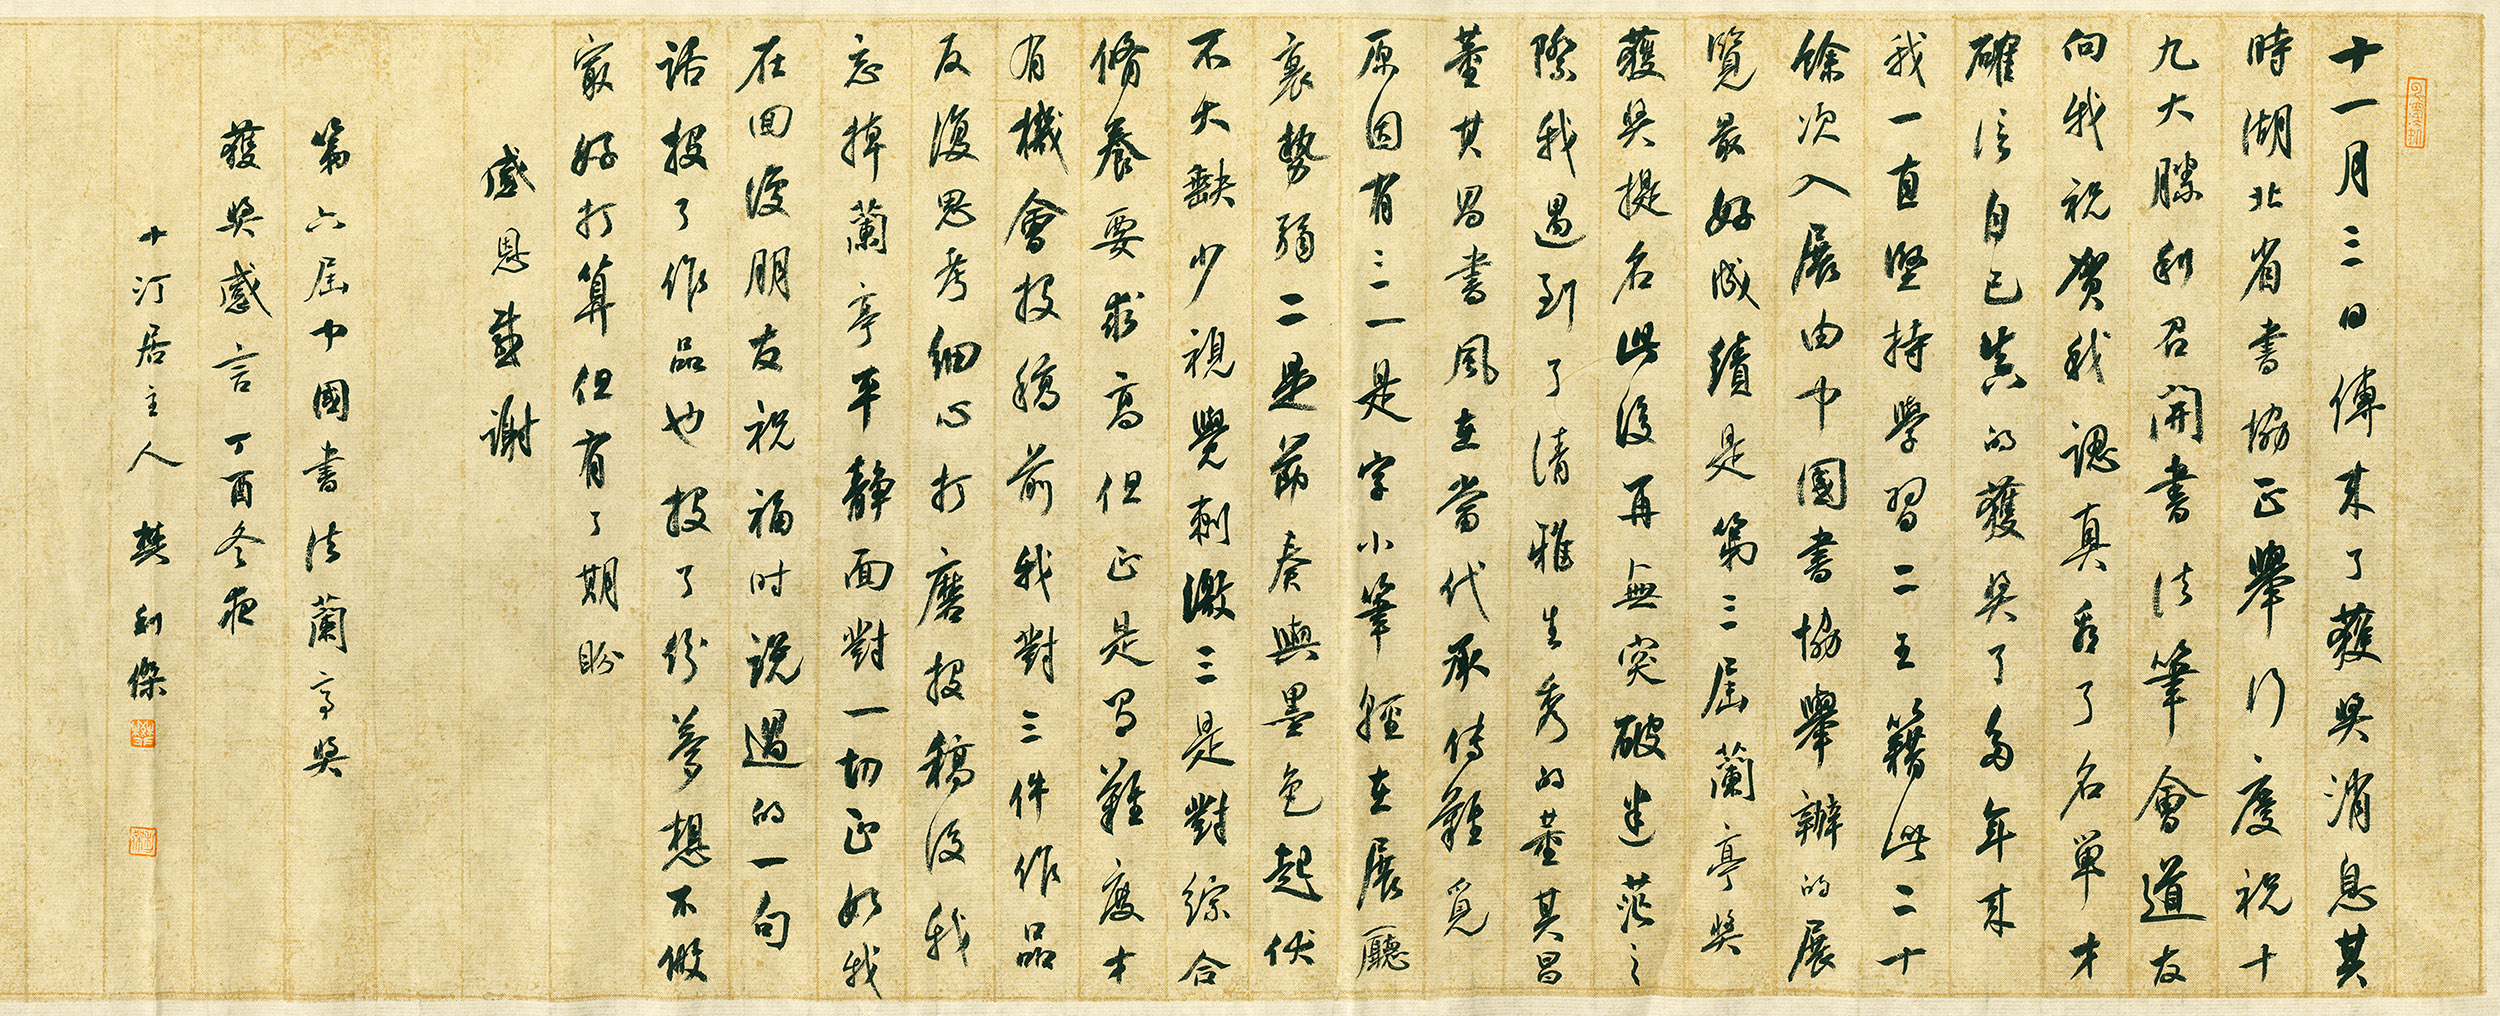 十一月三日傳来了獲奬消息其
時湖北省書協正舉行慶祝十
九大勝利召開書法筆會道友
向我祝贺我認真看了名單才
確信自己真的獲奬了多年来
我一直堅持學習二王籍此二十
餘次入展由中國書協舉辦的展
覽最好成績是第三届蘭亭奬
獲奬提名此後再無突破迷茫之
際我遇到了清雅生秀的董其昌
董其昌書風在當代承傳難覓
原因有三一是字小筆輕在展廳
裏勢弱二是節奏與墨色起伏
不大缺少視覺刺激三是對綜合
脩養要求高但正是男難度才
有機會投稿前我對三件作品
反復思考細心打磨投稿後我
忘掉蘭亭平靜面對一切正如我
在回復朋友祝福时説過的一句
话投了作品也投了份夢想不做
最好打算但有了期盼
感恩感谢
第六届中國書法蘭亭奬
獲奬感言丁酉冬夜
十汀居主人樊利傑